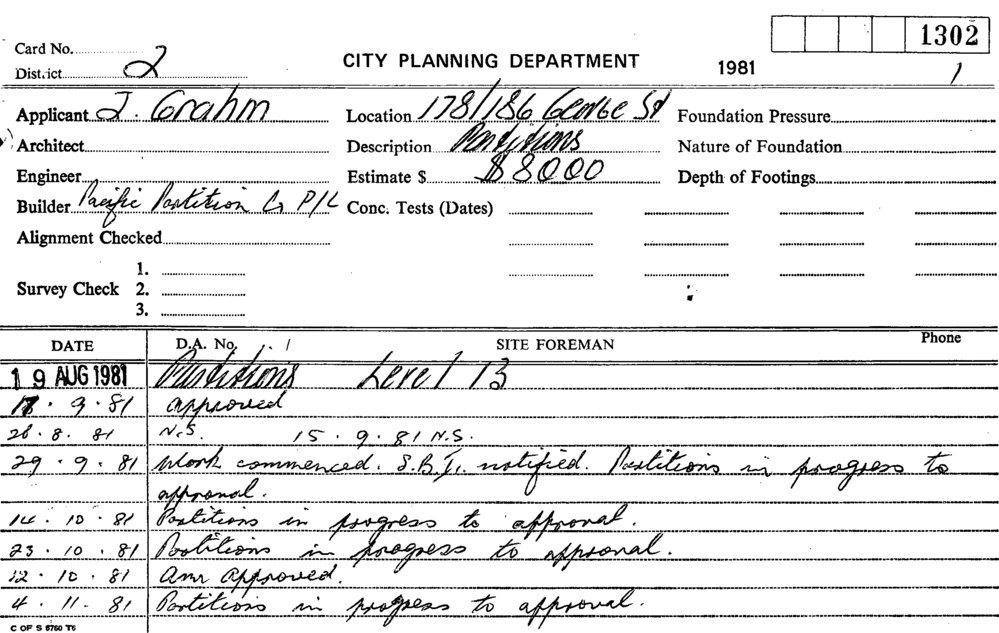 1302
Card No.
District 2
CITY PLANNING DEPARTMENT
1981
1
Applicant J. Grahm
Location 178/186 George St
Foundation Pressure
Architect
Description Partitions
Nature of Foundation
Engineer
Estimate $ $8000
Depth of Footings
Builder Pacific Partition Co P/L
Conc. Tests (Dates)
Alignment Checked
Survey Check 1.
2.
3.
DATE D.A. No. SITE FOREMAN Phone
19 AUG 1981 Partitions Level 13
9.81 approved
26.8.81 N.S. 15.9.81 N.S.
29.9.81 Work commenced. S.B.I. notified. Partitions in progress to
approval.
14.10.81 Partitions in progress to approval.
23.10.81 Partitions in progress to approval.
12.10.81 approved.
4.11.81 Partitions in progress to approval.
C OF S 6760 T6